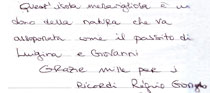 Quest'vista meravigliosa è un
dono della natura che va
assaporata come il passito di
Luigina e Giovanni
Grazie mille per i
Ricordi Rifugio